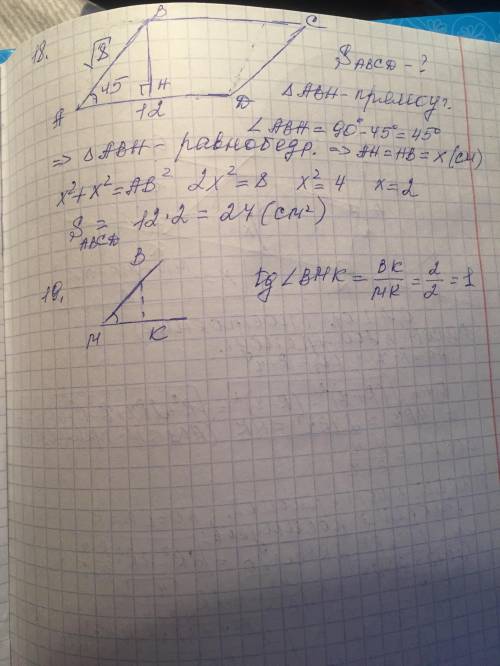 18.
B
C
√8
45
H
A
12
D
S ABCD - ?
△ABH - прямоуг.
∠ABH = 90° - 45° = 45°
⇒ △ABH - равнобедр. ⇒ AH = HB = x (см)
x² + x² = AB² 2x² = 8 x² = 4 x = 2
S ABCD = 12 · 2 = 24 (см²)
19.
B
M
K
tg ∠BMK = BK/MK = 2/2 = 1